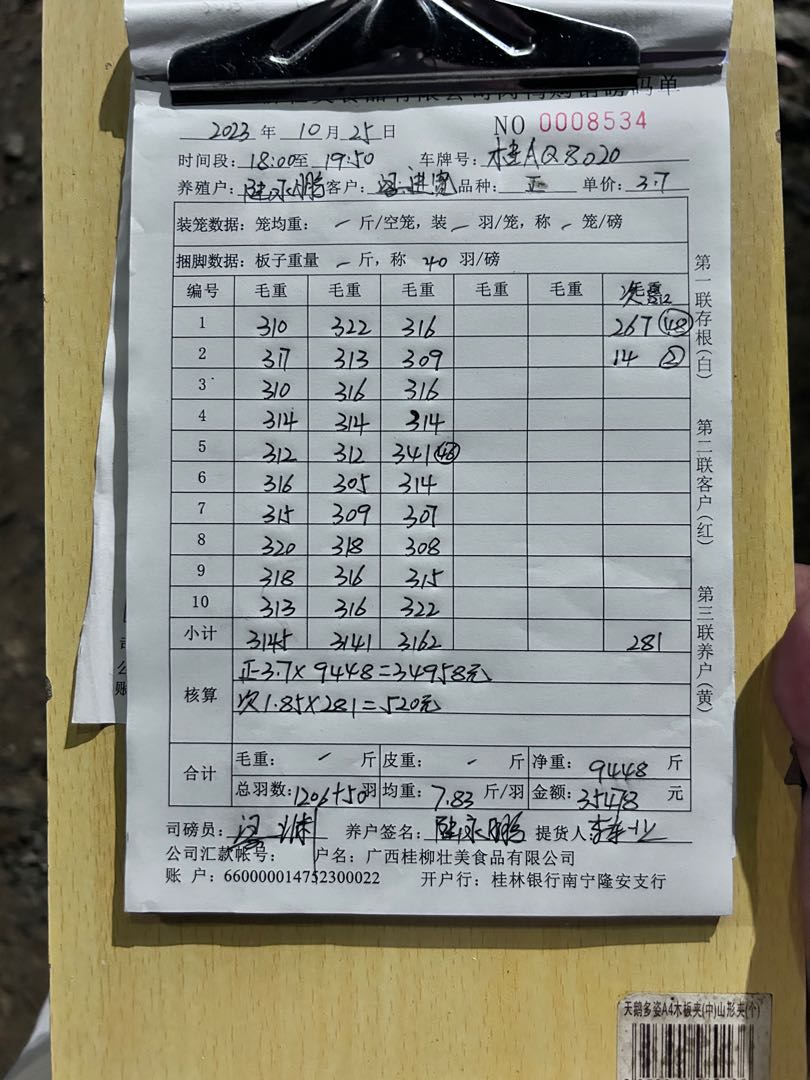 食品有限公司肉鸭购销磅码单
2023 年 10 月 25 日 NO 0008534
时间段: 18:00至 19:50 车牌号: 桂AQ8020
养殖户: 陆永鹏 客户: 进宽 品种: 正 单价: 3.7
装笼数据: 笼均重: - 斤/空笼, 装 - 羽/笼, 称 - 笼/磅
捆脚数据: 板子重量 - 斤, 称 40 羽/磅
编号 毛重 毛重 毛重 毛重 毛重 次
1 310 322 316 267 48
2 317 313 309 14 2
3 310 316 316
4 314 314 314
5 312 312 341 46
6 316 305 314
7 315 309 307
8 320 318 308
9 318 316 315
10 313 316 322
小计 3145 3141 3162 281
核算 正3.7×9448=34958元
次1.85×281=520元
合计 毛重: - 斤 皮重: - 斤 净重: 9448 斤
总羽数: 1206+50 羽 均重: 7.83 斤/羽 金额: 35478 元
司磅员: 养户签名: 陆永鹏 提货人
公司汇款帐号: 户名: 广西桂柳壮美食品有限公司
账 户: 660000014752300022 开户行: 桂林银行南宁隆安支行
第一联存根(白)
第二联客户(红)
第三联养户(黄)
天鹅多姿A4木板夹(中)山形夹(个)